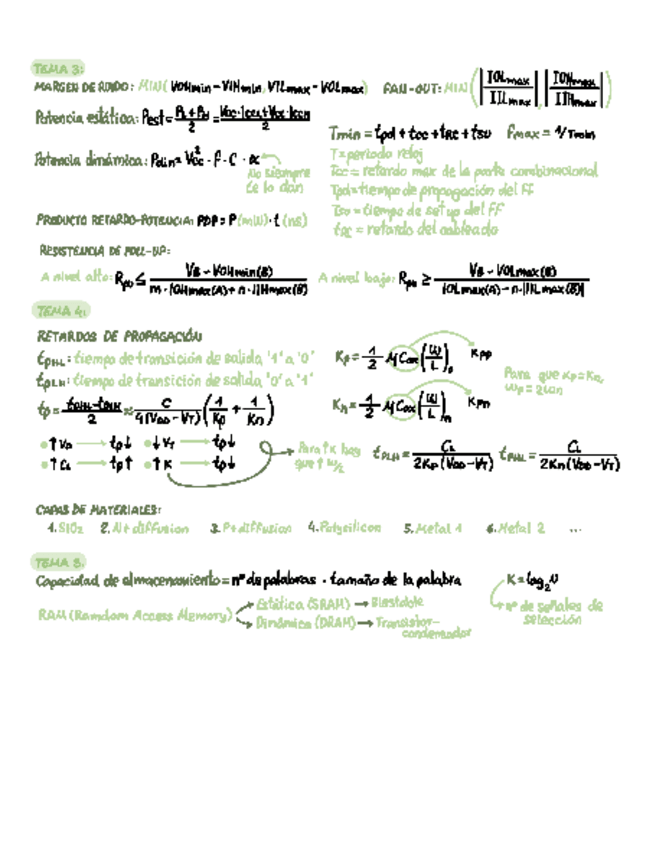 TEMA 3:
MARGEN DE RUIDO: MIN(VOHmin-VIHmin, VILmax-VOLmax) FAN-OUT: MIN(|IOLmax/IILmax|, |IOHmax/IIHmax|)
Potencia estática: Pest = (PL+PH)/2 = (Vcc·IccL+Vcc·IccH)/2
Tmin = tpd + tcc + tRC + tSU Fmax = 1/Tmin
T= periodo reloj
Potencia dinámica: Pdin = Vcc² · f · C · α
No siempre te lo dan
Tcc = retardo max de la parte combinacional
Tpd = tiempo de propagación del FF
Tsu = tiempo de setup del FF
PRODUCTO RETARDO-POTENCIA: PDP = P(mW)·t(ns)
tRC = retardo del cableado
RESISTENCIA DE PULL-UP:
A nivel alto: Rpu ≤ (VB - VOHmin(B))/(m·IOHmax(A)+n·IIHmax(B)) A nivel bajo: Rpu ≥ (VB - VOLmax(B))/(IOLmax(A)-n·|IILmax(B)|)
TEMA 4:
RETARDOS DE PROPAGACIÓN
tPHL: tiempo de transición de salida '1' a '0'
tPLH: tiempo de transición de salida '0' a '1'
Kp = 1/2 μCox (W/L)p Kpp
Para que Kp=Kn, Wp = 2Wn
tp = (tPHL-tPLH)/2 ≈ C/(4(VDD-VT)) (1/Kp + 1/Kn)
Kn = 1/2 μCox (W/L)n Kpn
↑VDD → tp↓ ↓VT → tp↓
↑CL → tp↑ ↑K → tp↓
Para ↑K hay que ↑W/L
tPLH = CL/(2Kp(VDD-VT)) tPHL = CL/(2Kn(VDD-VT))
CAPAS DE MATERIALES:
1. SiO2 2. N+diffusion 3. P+diffusion 4. Polysilicon 5. Metal 1 6. Metal 2 ...
TEMA 5.
Capacidad de almacenamiento = nº de palabras · tamaño de la palabra K = log2 N
RAM (Ramdom Access Memory) → Estática (SRAM) → Biestable
→ Dinámica (DRAM) → Transistor-condensador
nº de señales de selección